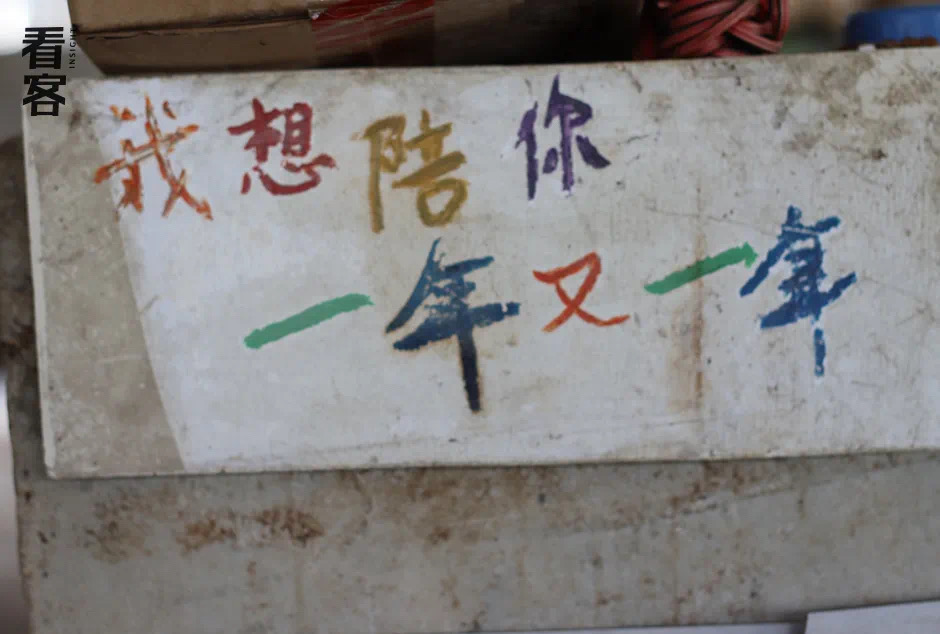 看客
INSIGHT
我想陪你
一年又一年